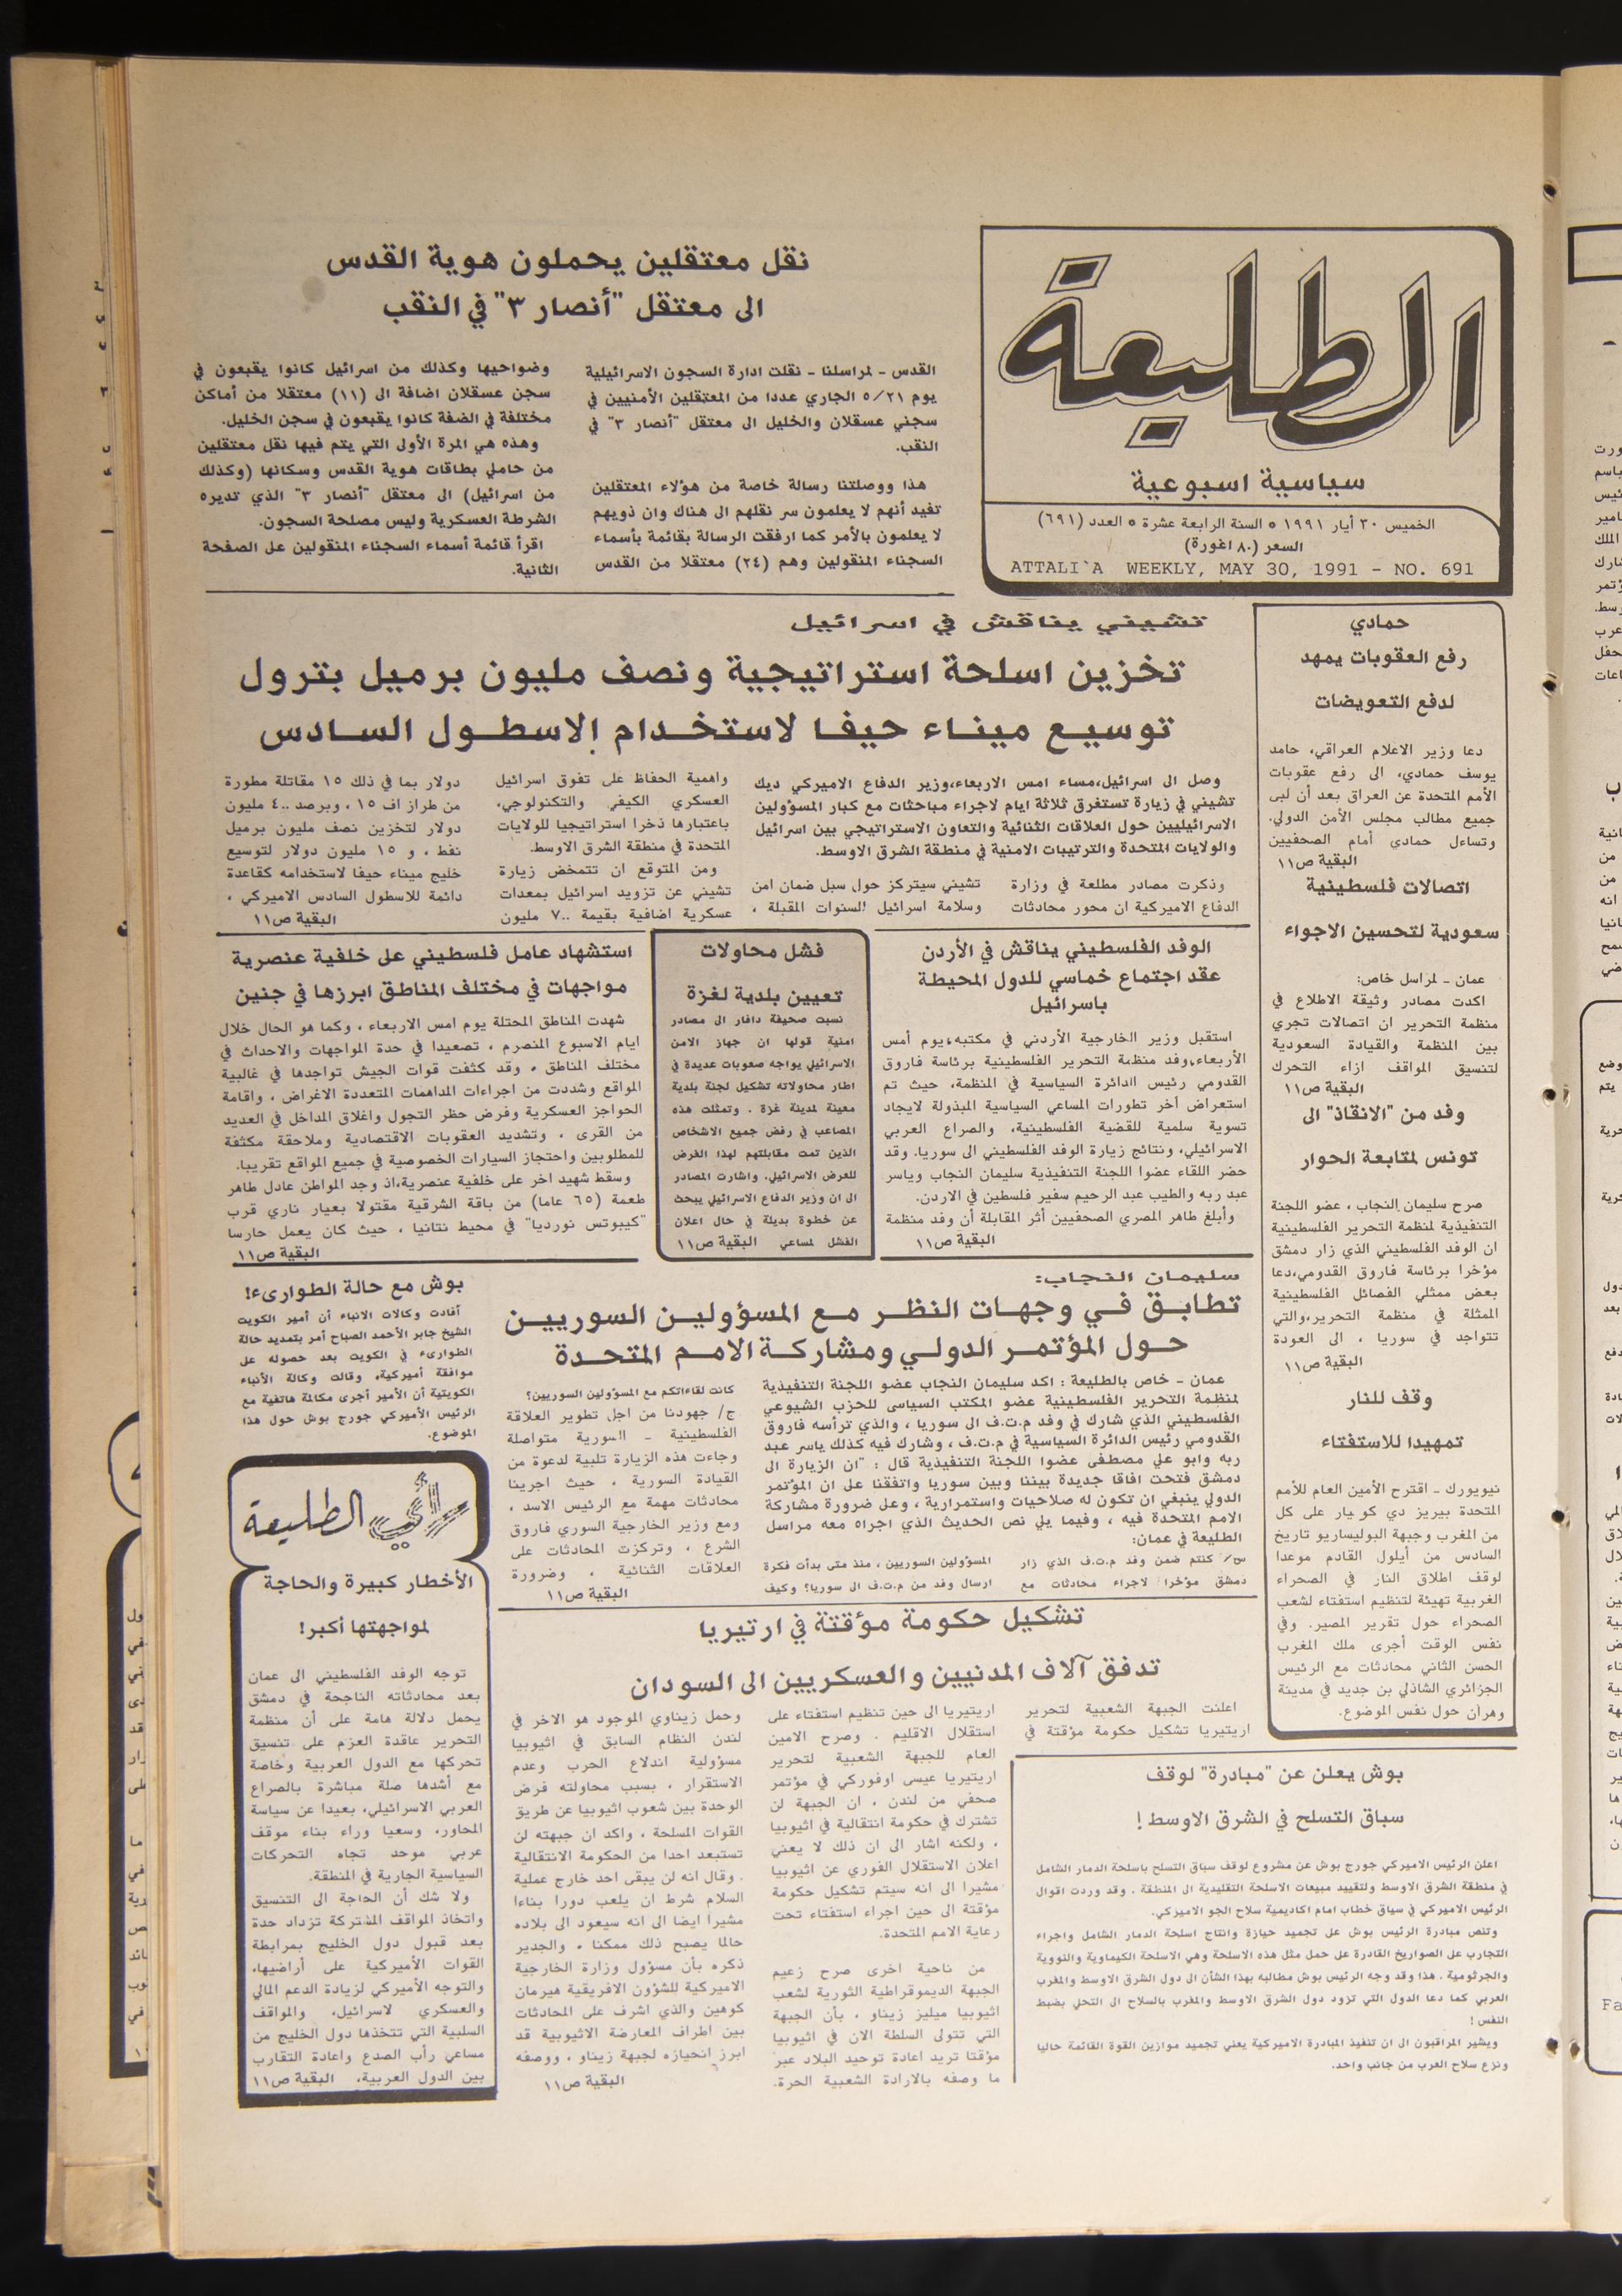 الطليعة
سياسية اسبوعية
الخميس ٣٠ أيار ١٩٩١ * السنة الرابعة عشرة * العدد (٦٩١)
السعر (٨٠ اغورة)
ATTALI`A WEEKLY, MAY 30, 1991 - NO. 691
نقل معتقلين يحملون هوية القدس
الى معتقل "أنصار ٣" في النقب
القدس - لمراسلنا - نقلت ادارة السجون الاسرائيلية
يوم ٥/٢١ الجاري عددا من المعتقلين الأمنيين في
سجني عسقلان والخليل الى معتقل "أنصار ٣" في
النقب.
هذا ووصلتنا رسالة خاصة من هؤلاء المعتقلين
تفيد أنهم لا يعلمون سر نقلهم الى هناك وان ذويهم
لا يعلمون بالأمر كما ارفقت الرسالة بقائمة بأسماء
السجناء المنقولين وهم (٢٤) معتقلا من القدس
وضواحيها وكذلك من اسرائيل كانوا يقبعون في
سجن عسقلان اضافة الى (١١) معتقلا من أماكن
مختلفة في الضفة كانوا يقبعون في سجن الخليل.
وهذه هي المرة الأولى التي يتم فيها نقل معتقلين
من حاملي بطاقات هوية القدس وسكانها (وكذلك
من اسرائيل) الى معتقل "أنصار ٣" الذي تديره
الشرطة العسكرية وليس مصلحة السجون.
اقرأ قائمة أسماء السجناء المنقولين على الصفحة
الثانية.
حمادي
رفع العقوبات يمهد
لدفع التعويضات
دعا وزير الاعلام العراقي، حامد
يوسف حمادي، الى رفع عقوبات
الأمم المتحدة عن العراق بعد أن لبى
جميع مطالب مجلس الأمن الدولي.
وتساءل حمادي أمام الصحفيين
البقية ص١١
اتصالات فلسطينية
سعودية لتحسين الاجواء
عمان - لمراسل خاص:
اكدت مصادر وثيقة الاطلاع في
منظمة التحرير ان اتصالات تجري
بين المنظمة والقيادة السعودية
لتنسيق المواقف ازاء التحرك
البقية ص١١
وفد من "الانقاذ" الى
تونس لمتابعة الحوار
صرح سليمان النجاب ، عضو اللجنة
التنفيذية لمنظمة التحرير الفلسطينية
ان الوفد الفلسطيني الذي زار دمشق
مؤخرا برئاسة فاروق القدومي،دعا
بعض ممثلي الفصائل الفلسطينية
الممثلة في منظمة التحرير،والتي
تتواجد في سوريا ، الى العودة
البقية ص١١
وقف للنار
تمهيدا للاستفتاء
نيويورك - اقترح الأمين العام للأمم
المتحدة بيريز دي كويار على كل
من المغرب وجبهة البوليساريو تاريخ
السادس من أيلول القادم موعدا
لوقف اطلاق النار في الصحراء
الغربية تهيئة لتنظيم استفتاء لشعب
الصحراء حول تقرير المصير. وفي
نفس الوقت أجرى ملك المغرب
الحسن الثاني محادثات مع الرئيس
الجزائري الشاذلي بن جديد في مدينة
وهران حول نفس الموضوع.
تشيني يناقش في اسرائيل
تخزين اسلحة استراتيجية ونصف مليون برميل بترول
توسيع ميناء حيفا لاستخدام الاسطول السادس
وصل الى اسرائيل،مساء امس الاربعاء،وزير الدفاع الاميركي ديك
تشيني في زيارة تستغرق ثلاثة ايام لاجراء مباحثات مع كبار المسؤولين
الاسرائيليين حول العلاقات الثنائية والتعاون الاستراتيجي بين اسرائيل
والولايات المتحدة والترتيبات الامنية في منطقة الشرق الاوسط.
وذكرت مصادر مطلعة في وزارة
الدفاع الاميركية ان محور محادثات
تشيني سيتركز حول سبل ضمان امن
وسلامة اسرائيل السنوات المقبلة ،
واهمية الحفاظ على تفوق اسرائيل
العسكري الكيفي والتكنولوجي،
باعتبارها ذخرا استراتيجيا للولايات
المتحدة في منطقة الشرق الاوسط.
ومن المتوقع ان تتمخض زيارة
تشيني عن تزويد اسرائيل بمعدات
عسكرية اضافية بقيمة ٧٠٠ مليون
دولار بما في ذلك ١٥ مقاتلة مطورة
من طراز اف ١٥ ، وبرصد ٤٠٠ مليون
دولار لتخزين نصف مليون برميل
نفط ، و ١٥ مليون دولار لتوسيع
خليج ميناء حيفا لاستخدامه كقاعدة
دائمة للاسطول السادس الاميركي ،
البقية ص١١
الوفد الفلسطيني يناقش في الأردن
عقد اجتماع خماسي للدول المحيطة
باسرائيل
استقبل وزير الخارجية الأردني في مكتبه،يوم أمس
الأربعاء،وفد منظمة التحرير الفلسطينية برئاسة فاروق
القدومي رئيس الدائرة السياسية في المنظمة، حيث تم
استعراض آخر تطورات المساعي السياسية المبذولة لايجاد
تسوية سلمية للقضية الفلسطينية، والصراع العربي
الاسرائيلي، ونتائج زيارة الوفد الفلسطيني الى سوريا. وقد
حضر اللقاء عضوا اللجنة التنفيذية سليمان النجاب وياسر
عبد ربه والطيب عبد الرحيم سفير فلسطين في الاردن.
وأبلغ طاهر المصري الصحفيين أثر المقابلة أن وفد منظمة
البقية ص١١
فشل محاولات
تعيين بلدية لغزة
نسبت صحيفة دافار الى مصادر
امنية قولها ان جهاز الامن
الاسرائيلي يواجه صعوبات عديدة في
اطار محاولاته تشكيل لجنة بلدية
معينة لمدينة غزة . وتمثلت هذه
المصاعب في رفض جميع الاشخاص
الذين تمت مقابلتهم لهذا الغرض
للعرض الاسرائيلي. واشارت المصادر
الى ان وزير الدفاع الاسرائيلي يبحث
عن خطوة بديلة في حال اعلان
الفشل لمساعي البقية ص١١
استشهاد عامل فلسطيني على خلفية عنصرية
مواجهات في مختلف المناطق ابرزها في جنين
شهدت المناطق المحتلة يوم امس الاربعاء ، وكما هو الحال خلال
ايام الاسبوع المنصرم ، تصعيدا في حدة المواجهات والاحداث في
مختلف المناطق . وقد كثفت قوات الجيش تواجدها في غالبية
المواقع وشددت من اجراءات المداهمات المتعددة الاغراض ، واقامة
الحواجز العسكرية وفرض حظر التجول واغلاق المداخل في العديد
من القرى ، وتشديد العقوبات الاقتصادية وملاحقة مكثفة
للمطلوبين واحتجاز السيارات الخصوصية في جميع المواقع تقريبا.
وسقط شهيد اخر على خلفية عنصرية،اذ وجد المواطن عادل طاهر
طعمة (٦٥ عاما) من باقة الشرقية مقتولا بعيار ناري قرب
"كيبوتس نورديا" في محيط نتانيا ، حيث كان يعمل حارسا
البقية ص١١
سليمان النجاب:
تطابق في وجهات النظر مع المسؤولين السوريين
حول المؤتمر الدولي ومشاركة الامم المتحدة
عمان - خاص بالطليعة : اكد سليمان النجاب عضو اللجنة التنفيذية
لمنظمة التحرير الفلسطينية عضو المكتب السياسي للحزب الشيوعي
الفلسطيني الذي شارك في وفد م.ت.ف الى سوريا ، والذي ترأسه فاروق
القدومي رئيس الدائرة السياسية في م.ت.ف ، وشارك فيه كذلك ياسر عبد
ربه وابو علي مصطفى عضوا اللجنة التنفيذية قال : "ان الزيارة الى
دمشق فتحت افاقا جديدة بيننا وبين سوريا واتفقنا على ان المؤتمر
الدولي ينبغي ان تكون له صلاحيات واستمرارية ، وعلى ضرورة مشاركة
الامم المتحدة فيه ، وفيما يلي نص الحديث الذي اجراه معه مراسل
الطليعة في عمان:
س/ كنتم ضمن وفد م.ت.ف الذي زار
دمشق مؤخرا لاجراء محادثات مع
المسؤولين السوريين ، منذ متى بدأت فكرة
ارسال وفد من م.ت.ف الى سوريا؟ وكيف
كانت لقاءاتكم مع المسؤولين السوريين؟
ج/ جهودنا من اجل تطوير العلاقة
الفلسطينية - السورية متواصلة
وجاءت هذه الزيارة تلبية لدعوة من
القيادة السورية ، حيث اجرينا
محادثات مهمة مع الرئيس الاسد ،
ومع وزير الخارجية السوري فاروق
الشرع ، وتركزت المحادثات على
العلاقات الثنائية ، وضرورة
البقية ص١١
بوش مع حالة الطوارىء!
أفادت وكالات الانباء أن أمير الكويت
الشيخ جابر الأحمد الصباح أمر بتمديد حالة
الطوارىء في الكويت بعد حصوله على
موافقة أميركية، وقالت وكالة الأنباء
الكويتية أن الأمير أجرى مكالمة هاتفية مع
الرئيس الأميركي جورج بوش حول هذا
الموضوع.
رأي الطليعة
الأخطار كبيرة والحاجة
لمواجهتها أكبر!
توجه الوفد الفلسطيني الى عمان
بعد محادثاته الناجحة في دمشق
يحمل دلالة هامة على أن منظمة
التحرير عاقدة العزم على تنسيق
تحركها مع الدول العربية وخاصة
مع أشدها صلة مباشرة بالصراع
العربي الاسرائيلي، بعيدا عن سياسة
المحاور، وسعيا وراء بناء موقف
عربي موحد تجاه التحركات
السياسية الجارية في المنطقة.
ولا شك أن الحاجة الى التنسيق
واتخاذ المواقف المشتركة تزداد حدة
بعد قبول دول الخليج بمرابطة
القوات الأميركية على أراضيها،
والتوجه الأميركي لزيادة الدعم المالي
والعسكري لاسرائيل، والمواقف
السلبية التي تتخذها دول الخليج من
مساعي رأب الصدع واعادة التقارب
بين الدول العربية، البقية ص١١
تشكيل حكومة مؤقتة في ارتيريا
تدفق آلاف المدنيين والعسكريين الى السودان
اعلنت الجبهة الشعبية لتحرير
اريتيريا تشكيل حكومة مؤقتة في
اريتيريا الى حين تنظيم استفتاء على
استقلال الاقليم . وصرح الامين
العام للجبهة الشعبية لتحرير
اريتيريا عيسى اوفوركي في مؤتمر
صحفي من لندن ، ان الجبهة لن
تشترك في حكومة انتقالية في اثيوبيا
، ولكنه اشار الى ان ذلك لا يعني
اعلان الاستقلال الفوري عن اثيوبيا
مشيرا الى انه سيتم تشكيل حكومة
مؤقتة الى حين اجراء استفتاء تحت
رعاية الامم المتحدة.
من ناحية اخرى صرح زعيم
الجبهة الديموقراطية الثورية لشعب
اثيوبيا ميليز زيناو ، بأن الجبهة
التي تتولى السلطة الان في اثيوبيا
مؤقتا تريد اعادة توحيد البلاد عبر
ما وصفه بالارادة الشعبية الحرة.
وحمل زيناوي الموجود هو الاخر في
لندن النظام السابق في اثيوبيا
مسؤولية اندلاع الحرب وعدم
الاستقرار ، بسبب محاولته فرض
الوحدة بين شعوب اثيوبيا عن طريق
القوات المسلحة ، واكد ان جبهته لن
تستبعد احدا من الحكومة الانتقالية
. وقال انه لن يبقى احد خارج عملية
السلام شرط ان يلعب دورا بناءا
مشيرا ايضا الى انه سيعود الى بلاده
حالما يصبح ذلك ممكنا . والجدير
ذكره بأن مسؤول وزارة الخارجية
الاميركية للشؤون الافريقية هيرمان
كوهين والذي اشرف على المحادثات
بين اطراف المعارضة الاثيوبية قد
ابرز انحيازه لجبهة زيناو ، ووصفه
البقية ص١١
بوش يعلن عن "مبادرة" لوقف
سباق التسلح في الشرق الاوسط !
اعلن الرئيس الاميركي جورج بوش عن مشروع لوقف سباق التسلح باسلحة الدمار الشامل
في منطقة الشرق الاوسط ولتقييد مبيعات الاسلحة التقليدية الى المنطقة . وقد وردت اقوال
الرئيس الاميركي في سياق خطاب امام اكاديمية سلاح الجو الاميركي.
وتنص مبادرة الرئيس بوش على تجميد حيازة وانتاج اسلحة الدمار الشامل واجراء
التجارب على الصواريخ القادرة على حمل مثل هذه الاسلحة وهي الاسلحة الكيماوية والنووية
والجرثومية . هذا وقد وجه الرئيس بوش مطالبه بهذا الشأن الى دول الشرق الاوسط والمغرب
العربي كما دعا الدول التي تزود دول الشرق الاوسط والمغرب بالسلاح الى التحلي بضبط
النفس !
ويشير المراقبون الى ان تنفيذ المبادرة الاميركية يعني تجميد موازين القوة القائمة حاليا
ونزع سلاح العرب من جانب واحد.